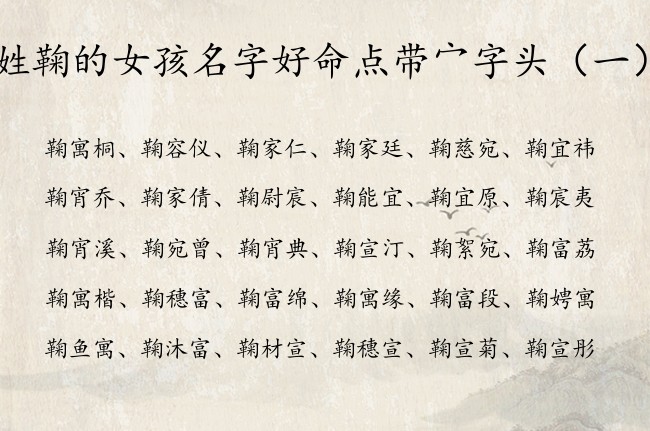 姓鞠的女孩名字好命点带宀字头（一）
鞠寓桐、鞠容仪、鞠家仁、鞠家廷、鞠慈宛、鞠宜祎
鞠宵乔、鞠家倩、鞠尉宸、鞠能宜、鞠宜原、鞠宸夷
鞠宵溪、鞠宛曾、鞠宵典、鞠宣汀、鞠絮宛、鞠富荔
鞠寓楷、鞠穗富、鞠富绵、鞠寓缘、鞠富段、鞠娉寓
鞠鱼寓、鞠沐富、鞠材宣、鞠穗宣、鞠宣菊、鞠宣彤